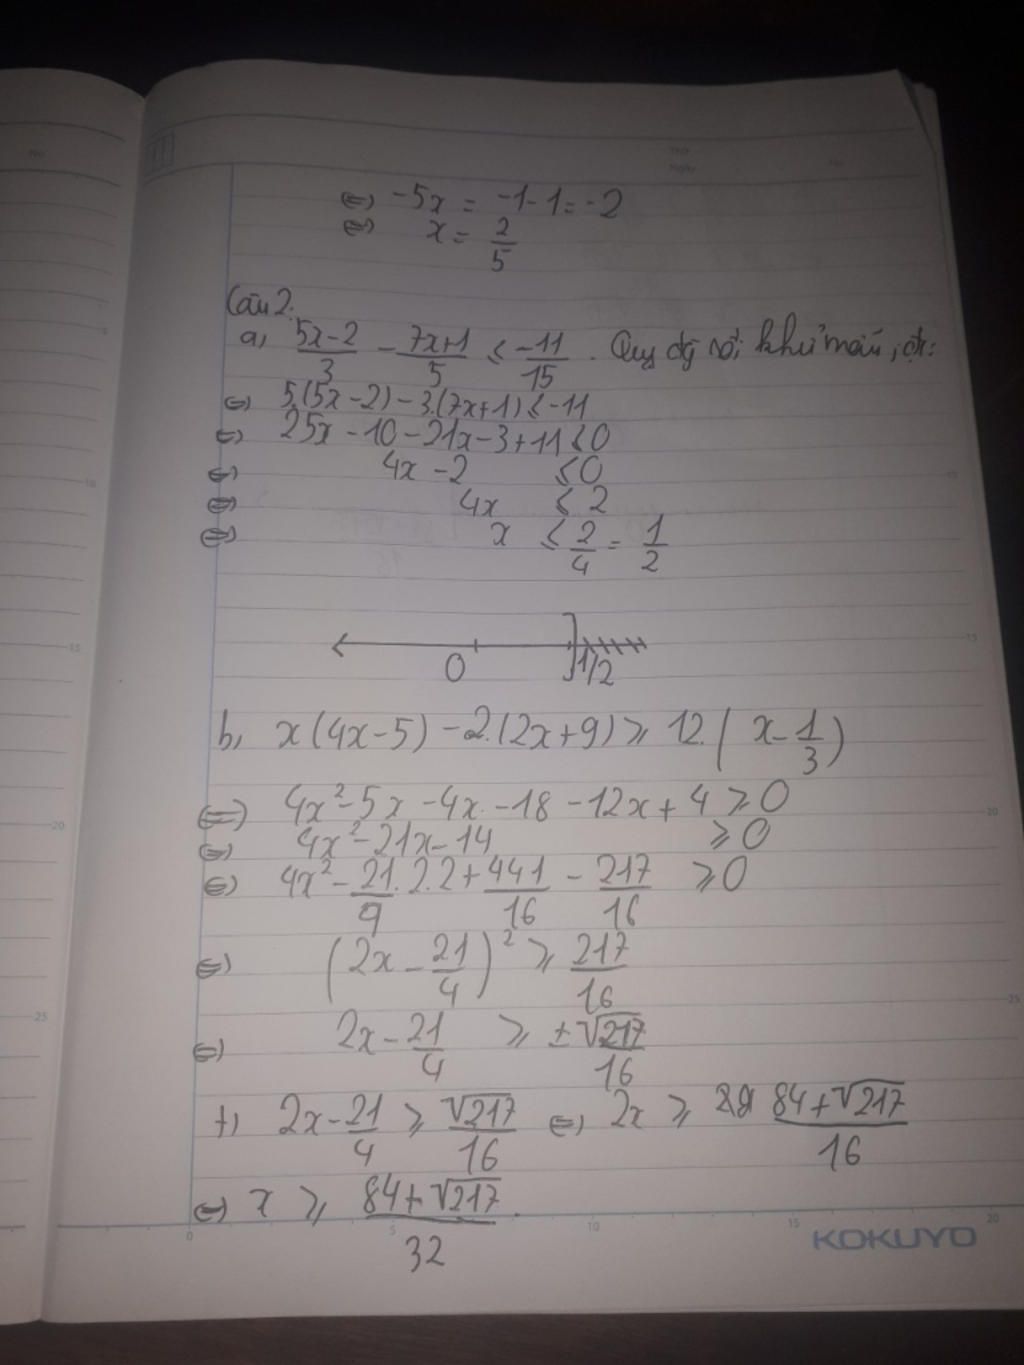 ⇔ -5x = -1-1 = -2
⇔ x = 2/5
Câu 2:
a, (5x-2)/3 - (7x+1)/5 ≤ -11/15. Quy đg rồi khử mẫu, ot:
⇔ 5.(5x-2) - 3.(7x+1) ≤ -11
⇔ 25x - 10 - 21x - 3 + 11 ≤ 0
⇔ 4x - 2 ≤ 0
⇔ 4x ≤ 2
⇔ x ≤ 2/4 = 1/2
0 1/2
b, x(4x-5) - 2.(2x+9) ≥ 12.(x - 1/3)
⇔ 4x² - 5x - 4x - 18 - 12x + 4 ≥ 0
⇔ 4x² - 21x - 14 ≥ 0
⇔ 4x² - 21/4 . 2.2 + 441/16 - 217/16 ≥ 0
⇔ (2x - 21/4)² ≥ 217/16
⇔ 2x - 21/4 ≥ ±√217/16
+) 2x - 21/4 ≥ √217/16 ⇔ 2x ≥ (84+√217)/16
⇔ x ≥ (84+√217)/32.
KOKUYO